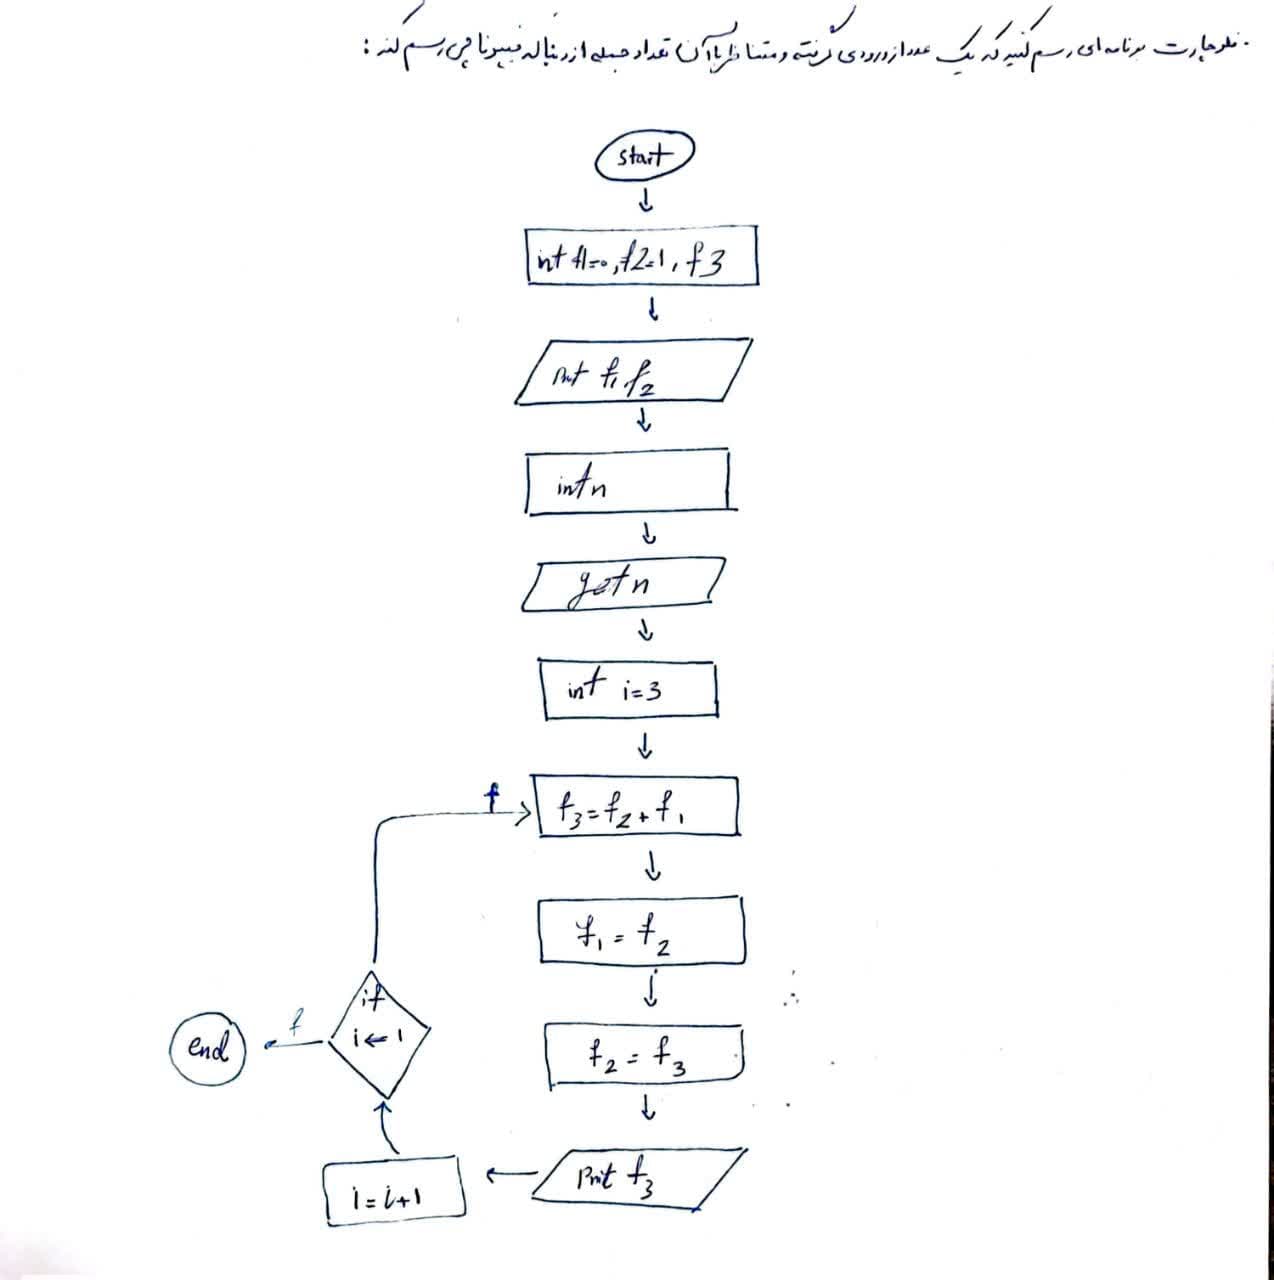 فلوچارت برنامه‌ای رسم کنید که یک عدد از ورودی گرفته و متناظر با آن تعداد جمله از دنباله فیبوناچی رسم کند :
start
int f1=0, f2=1, f3
Prnt f1 f2
int n
get n
int i=3
f
f3=f2+f1
f1=f2
if
i<=1
f
end
f2=f3
Prnt f3
i=i+1